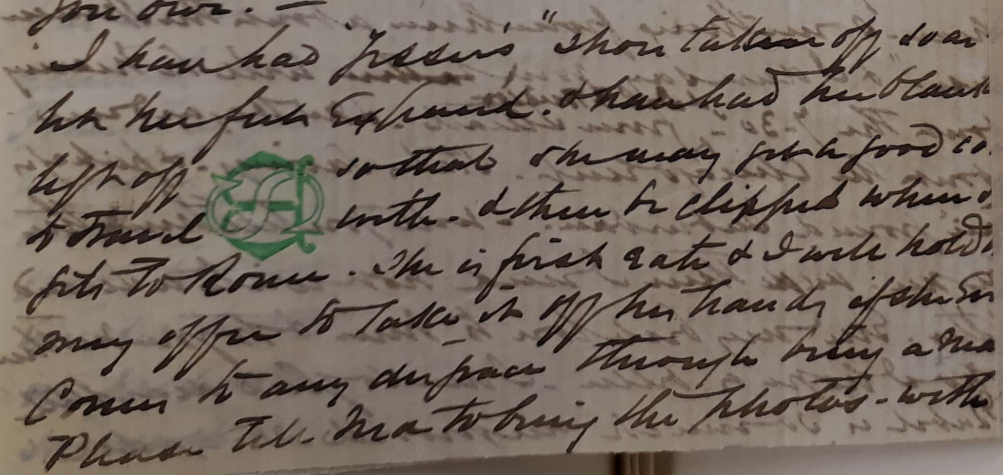 you own. —
I have had "Jessie's" shoes taken off so as
let her feet Expand. & have had her blank
left off so that she may get a good co
to travel with. & then be clipped when s
gets to Rome. She is first rate & I will hold
my offer to take it off her hands if she Ev
Comes to any disgrace through being a ma
Please tell Ma to bring the photos - with